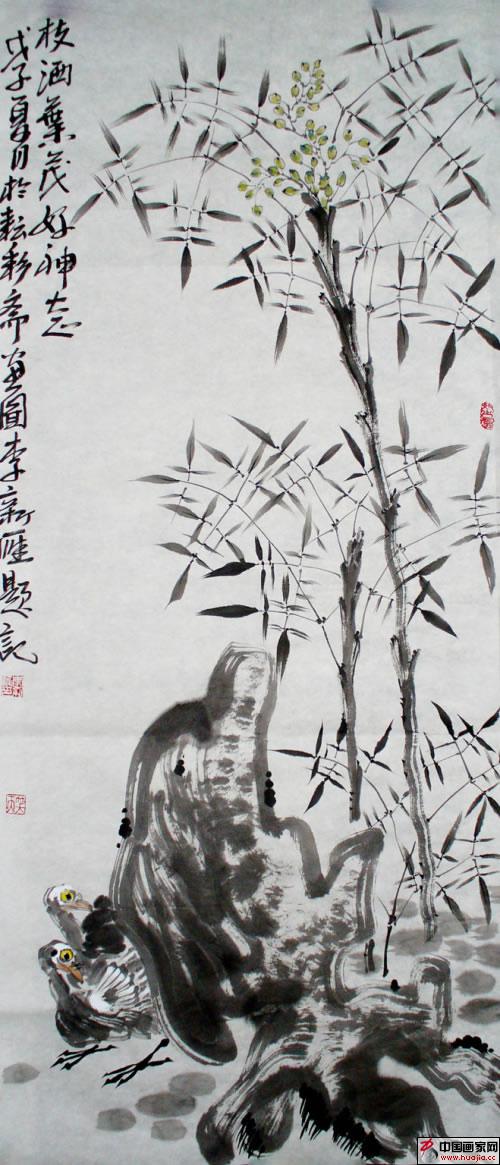 枝洒葉茂好神志
戊子夏月於耘彩斋画圖李新雁题記
中国画家网
www.huajia.cc